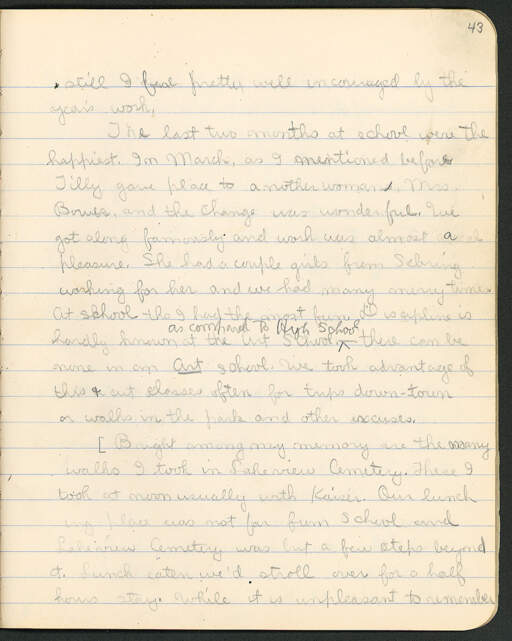 43
still I feel pretty well encouraged by the
year's work.
The last two months at school were the
happiest. In March, as I mentioned before
Tilly gave place to another woman, Mrs.
Bower, and the change was wonderful. We
got along famously and work was almost a
pleasure. She had a couple girls from Sebring
working for her and we had many merry times.
At school tho I had the most fun. Discipline is
as compared to High School
hardly known at the Art School there can be
none in an Art school. We took advantage of
this & cut classes often for trips down-town
or walks in the park and other excuses.
[ Bright among my memory are the many
walks I took in Lakeview Cemetery. These I
took at noon usually with Kaiser. Our lunch
ing place was not far from School and
Lakeview Cemetery was but a few steps beyond
it. Lunch eaten we'd stroll over for a half
hours stay. While it is unpleasant to remember